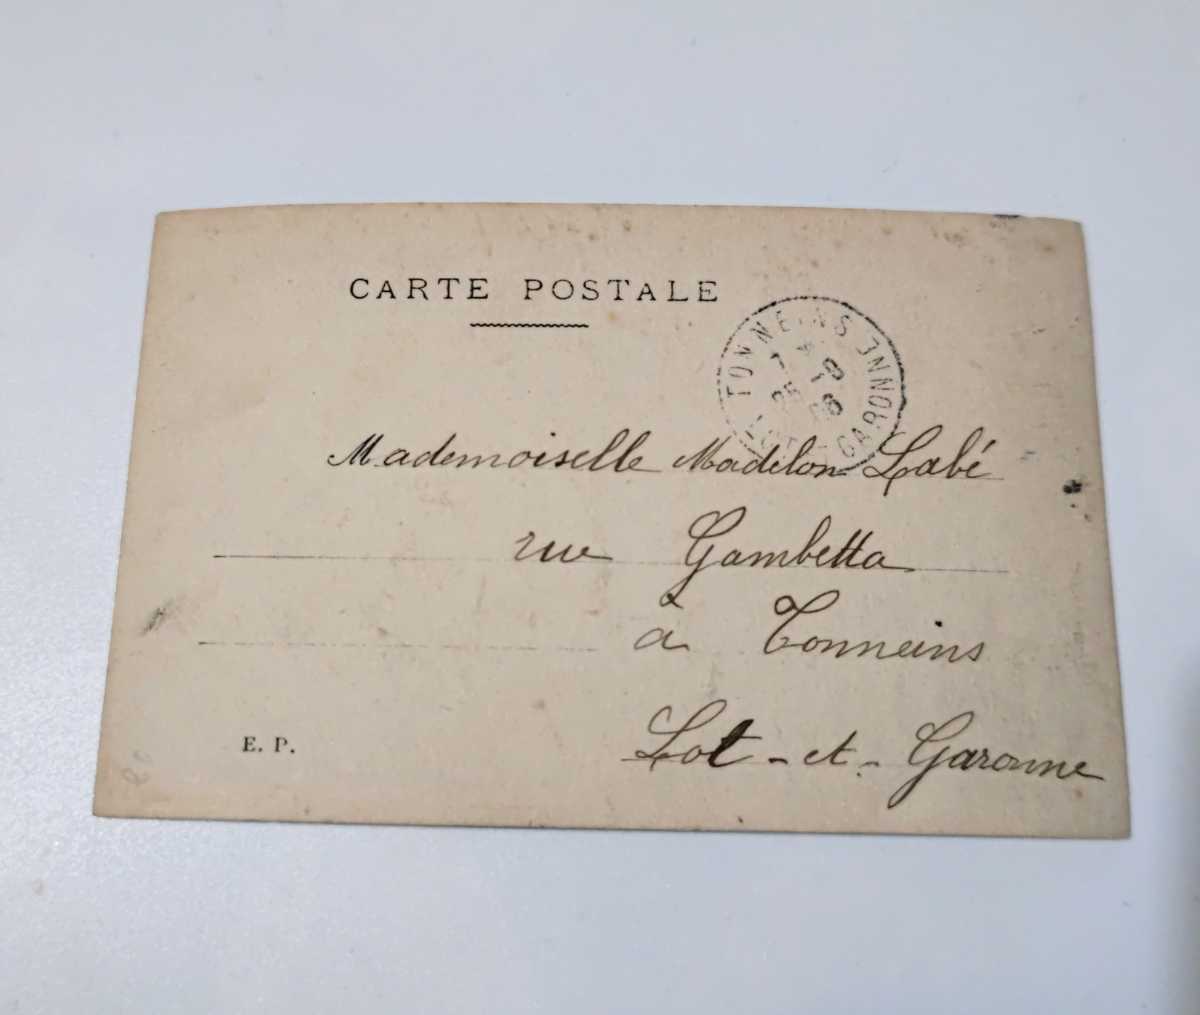 CARTE POSTALE
TONNEINS
LOT GARONNE
Mademoiselle Madelon Labé
rue Gambetta
à Tonneins
Lot-et-Garonne
E. P.